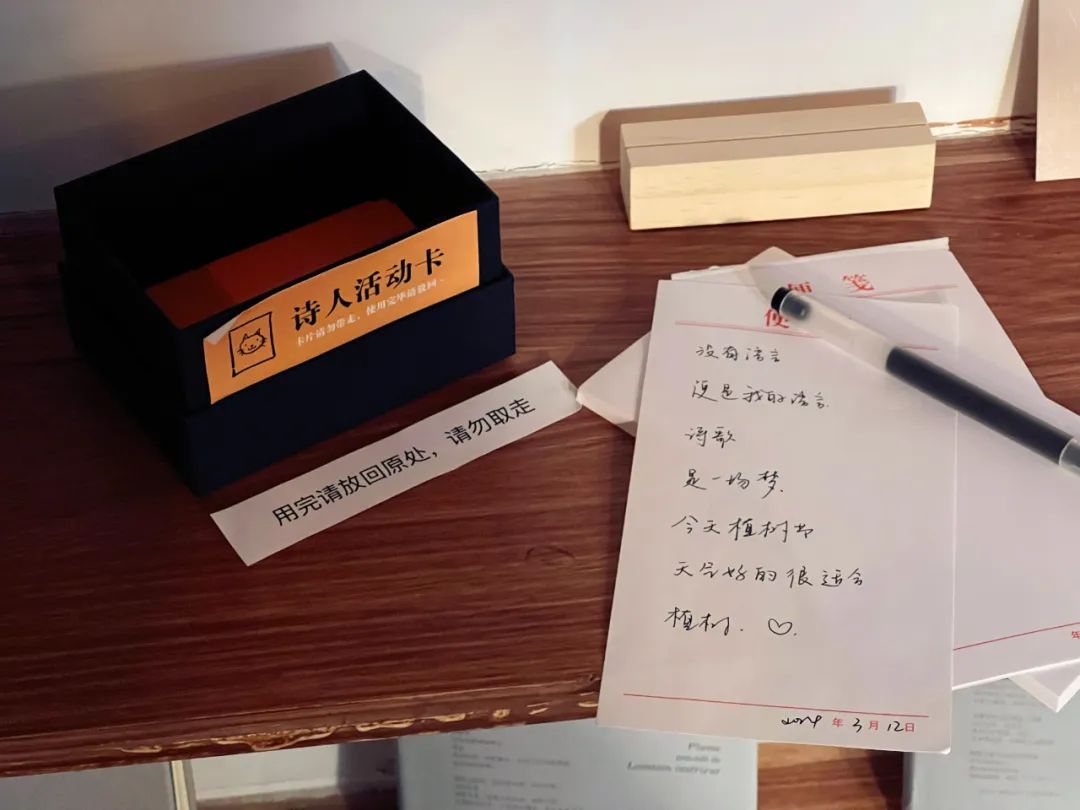 诗人活动卡
卡片请勿带走，使用完毕请放回。
用完请放回原处，请勿取走
便 笺
便
没有语言
便是我的语言
诗歌
是一场梦.
今天植树节
天气好的很适合
植树. ♡.
2024 年 3 月 12 日
年